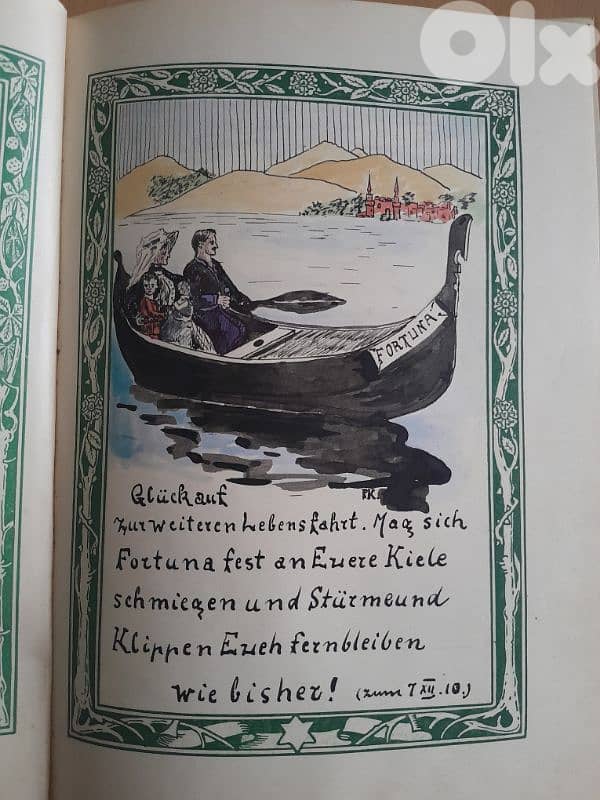 Olx
FORTUNA.
FK
Glückauf
zur weiteren Lebensfahrt. Mag sich
Fortuna fest an Euere Kiele
schmiegen und Stürme und
Klippen Eueh fernbleiben
wie bisher! (zum 7 XII. 10.)